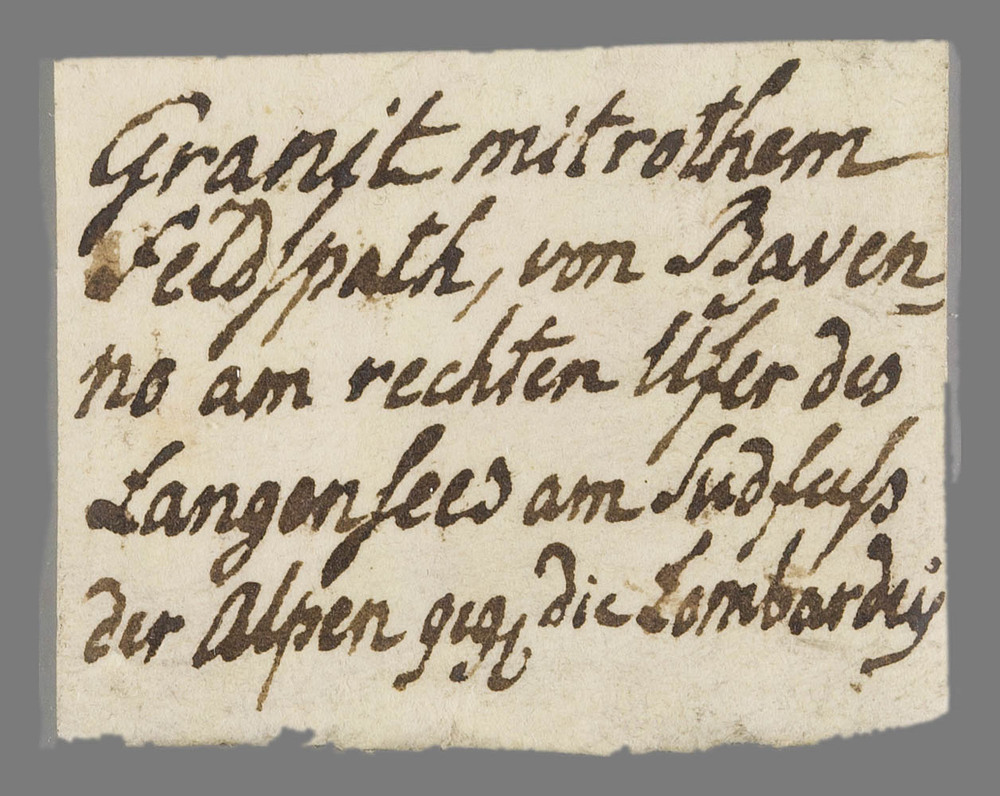 Granit mit rothem
Feldspath, von Baven-
no am rechten Ufer des
Langensees am Sudfuss
der Alpen geg die Lombardey